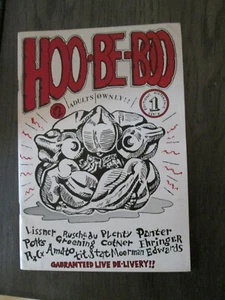 HOO-BE-BOO
ADULTS OWNLY!!
1
Lissner Ruscheau Plenty Panter
Potts Groening Cotner Ehringer
Race Amato Kit Stat Moorman Edwards
GAURANTEED LIVE DE-LIVERY!!